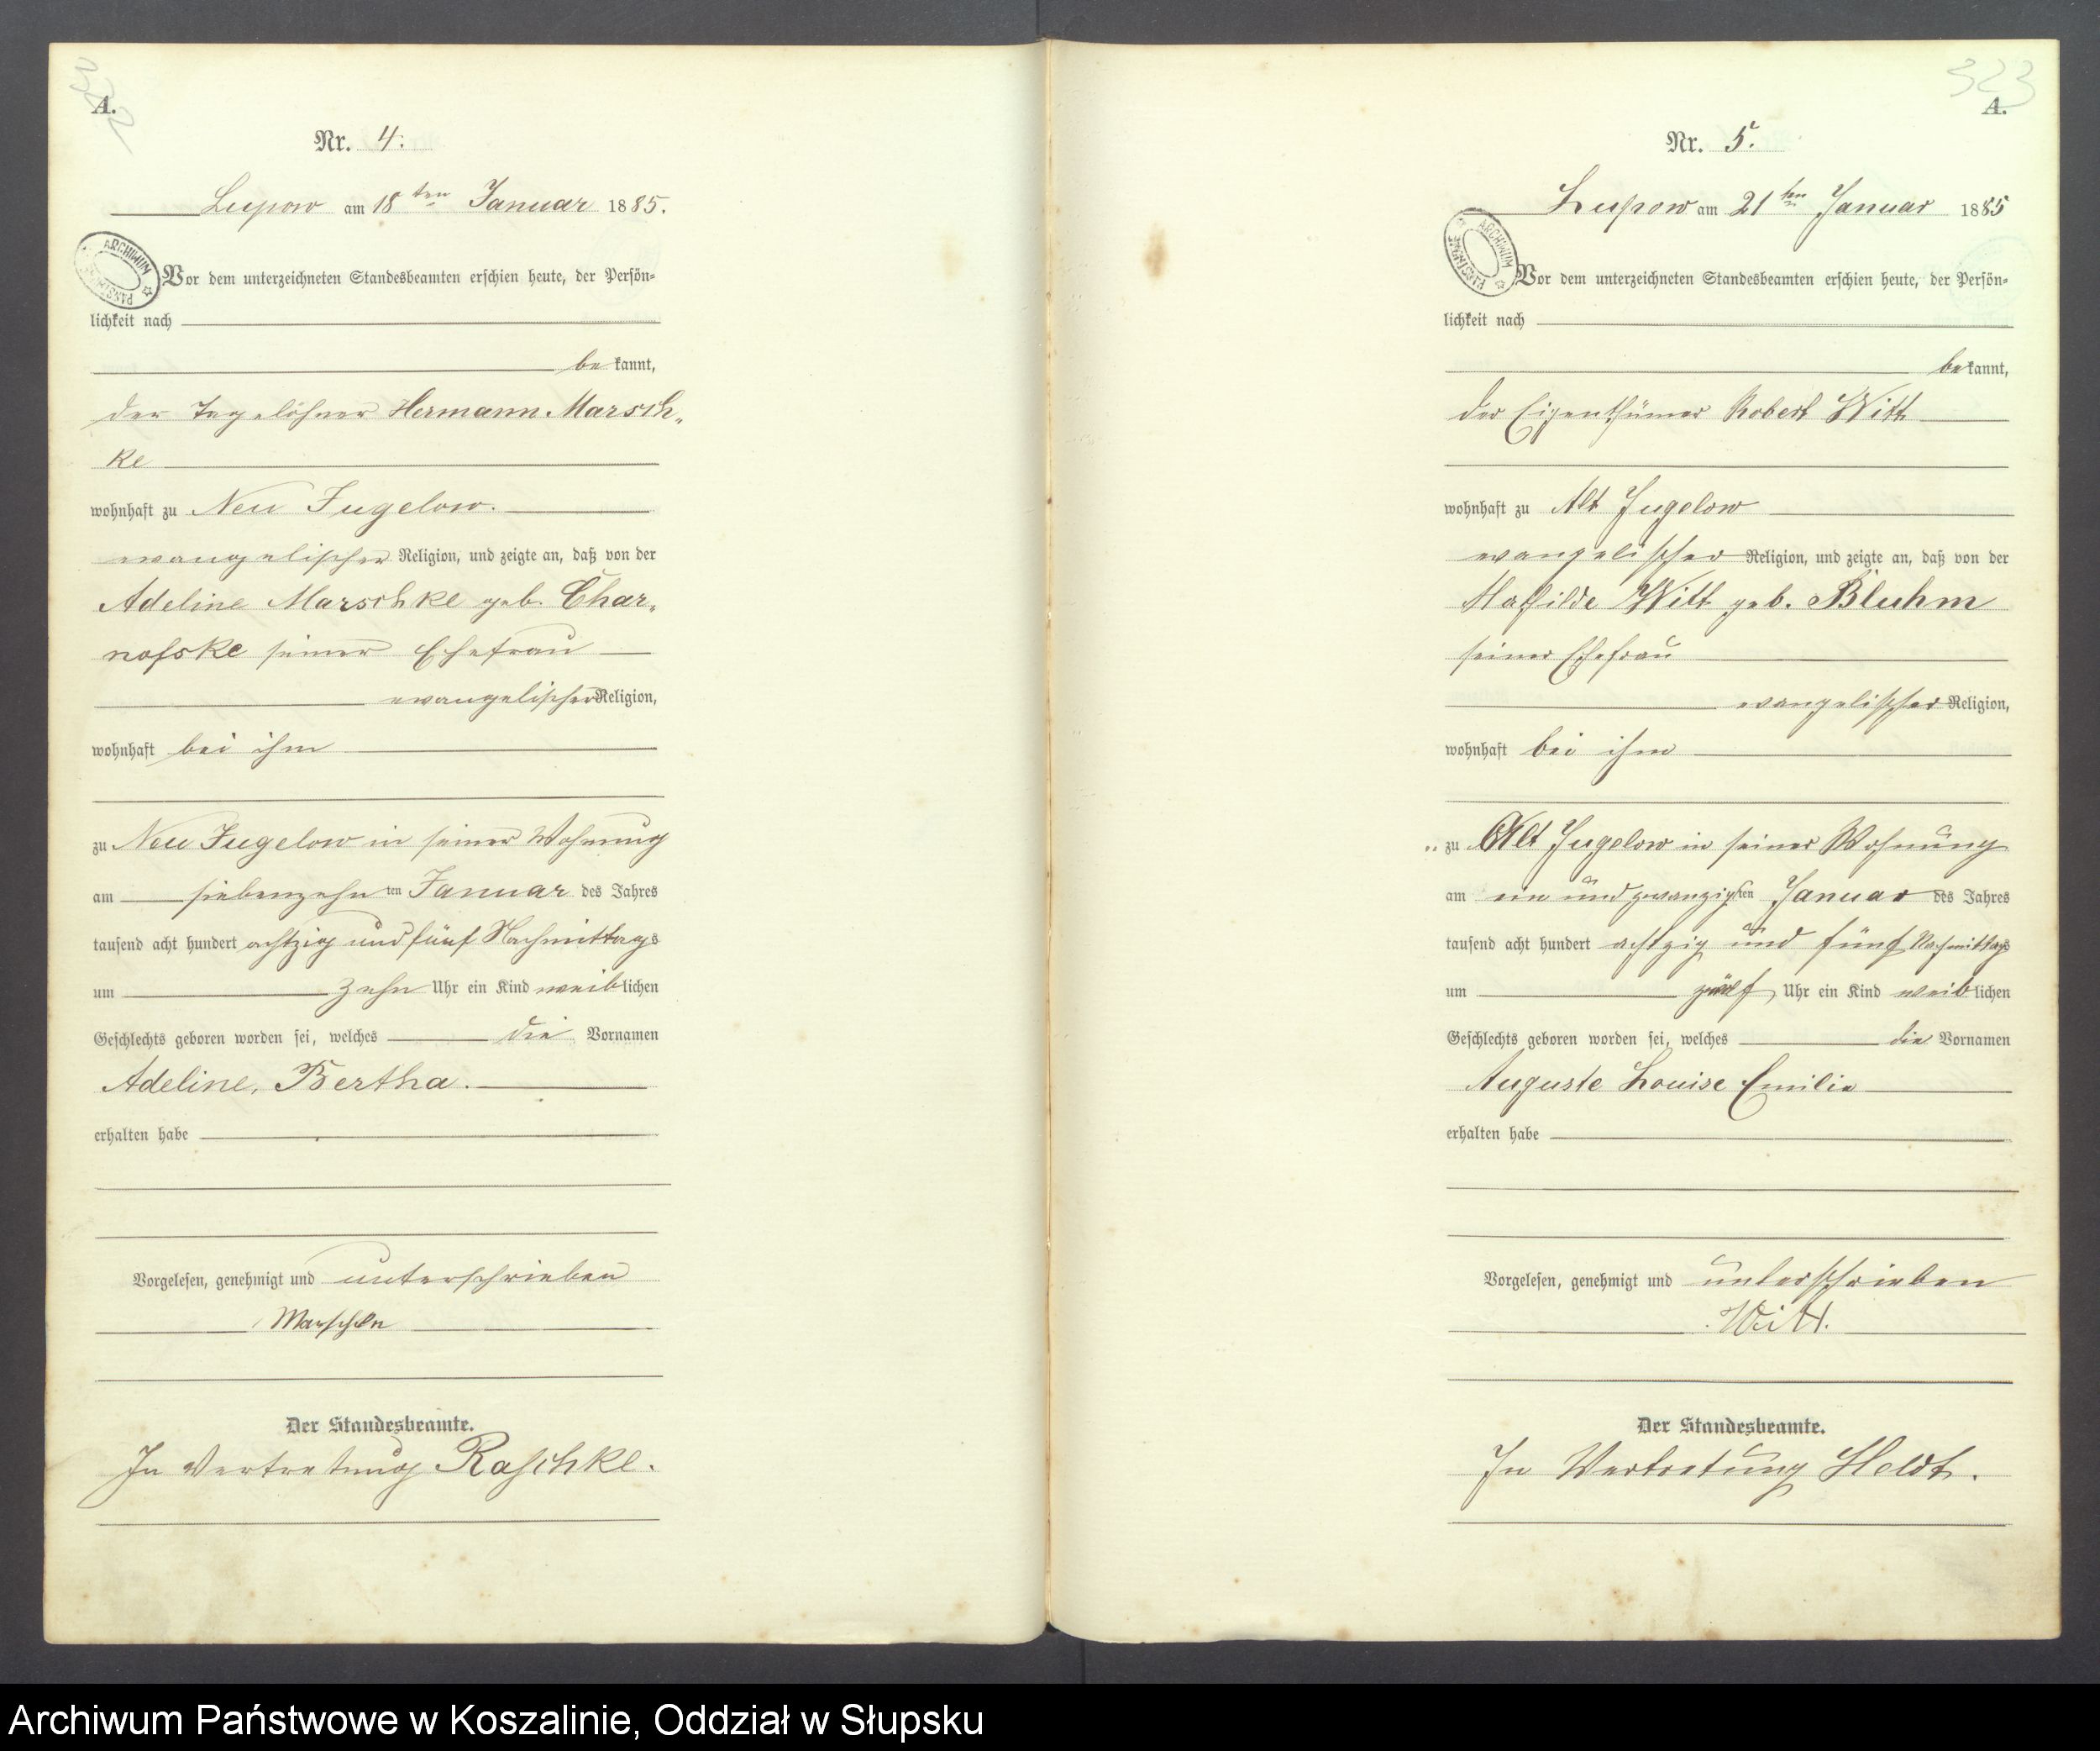 A.
322
Nr. 4.
Lupow am 18ten Januar 1885.
ARCHIWUM PAŃSTWOWE
Vor dem unterzeichneten Standesbeamten erschien heute, der Persön=
lichkeit nach
bekannt,
der Tagelöhner Hermann Marsch„
ke
wohnhaft zu Neu Jugelow.
evangelischer Religion, und zeigte an, daß von der
Adeline Marschke geb. Char„
nofske seiner Ehefrau
evangelischer Religion,
wohnhaft bei ihm
zu Neu Jugelow in seiner Wohnung
am siebenzehnten Januar des Jahres
tausend acht hundert achtzig und fünf Nachmittags
um zehn Uhr ein Kind weiblichen
Geschlechts geboren worden sei, welches die Vornamen
Adeline, Bertha.
erhalten habe
Vorgelesen, genehmigt und unterschrieben
Der Standesbeamte.
In Vertretung Raschke.
323
A.
Nr. 5.
Lupow am 21ten Januar 1885
ARCHIWUM PAŃSTWOWE
Vor dem unterzeichneten Standesbeamten erschien heute, der Persön=
lichkeit nach
bekannt,
der Eigenthümer Robert Witt
wohnhaft zu Alt Jugelow
evangelischer Religion, und zeigte an, daß von der
Mathilde Witt geb. Bluhm
seiner Ehefrau
evangelischer Religion,
wohnhaft bei ihm
zu Alt Jugelow in seiner Wohnung
am ein und zwanzigsten Januar des Jahres
tausend acht hundert achtzig und fünf Nachmittags
um zwölf Uhr ein Kind weiblichen
Geschlechts geboren worden sei, welches die Vornamen
Auguste Louise Emilie
erhalten habe
Vorgelesen, genehmigt und unterschrieben
Witt.
Der Standesbeamte.
In Vertretung Heldt.
Archiwum Państwowe w Koszalinie, Oddział w Słupsku